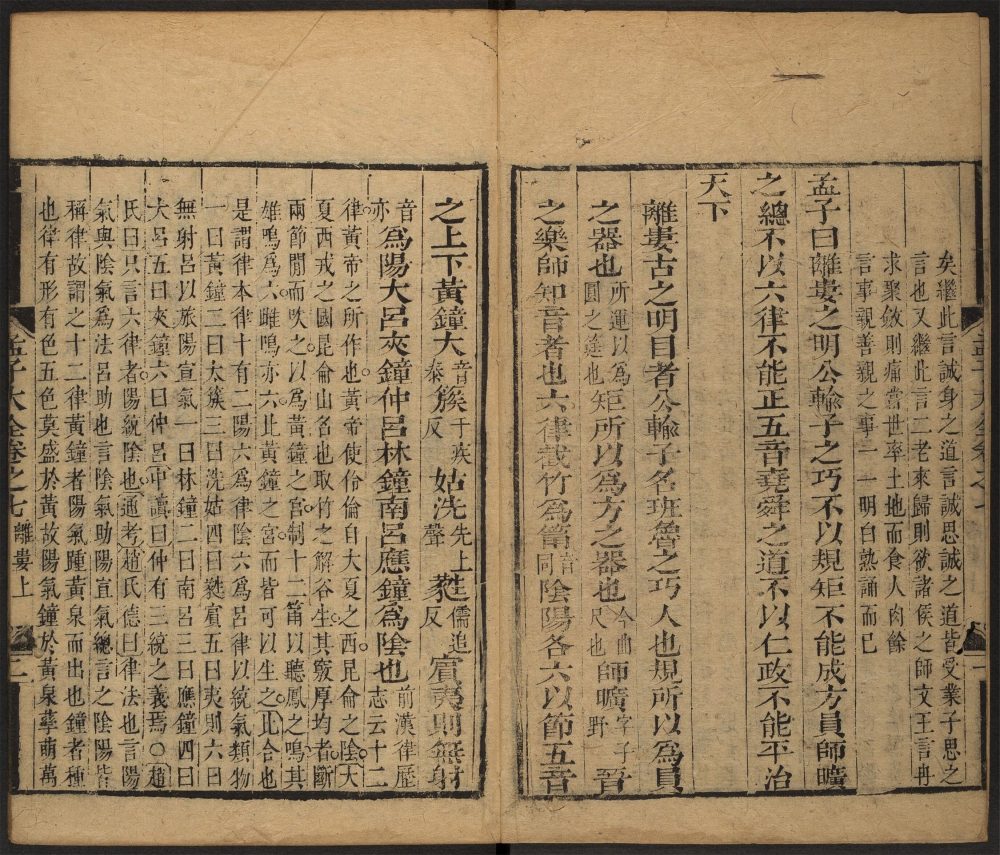 矣繼此言誠身之道言誠思誠之道皆受業子思之
言也又繼此言二老來歸則欲諸侯之師文王言冉
求聚斂則痛當世率土地而食人肉餘
言事親善親之事一一明白熟誦而已
孟子曰離婁之明公輸子之巧不以規矩不能成方員師曠
之總不以六律不能正五音堯舜之道不以仁政不能平治
天下
離婁古之明目者公輸子名班魯之巧人也規所以為員
之器也所運以為圓之筳也矩所以為方之器也今曲尺也師曠字子野晉
之樂師知音者也六律截竹為筩音同陰陽各六以節五音
之上下黃鐘大音泰簇千疾反姑洗先上聲蕤儒追反賓夷則無射
音亦為陽大呂夾鐘仲呂林鐘南呂應鐘為陰也前漢律歷志云十二
律黃帝之所作也黃帝使伶倫自大夏之西昆侖之陰大
夏西戎之國昆侖山名也取竹之解谷生其竅厚均者斷
兩節閒而吹之以為黃鐘之宮制十二筩以聽鳳之鳴其
雄鳴為六雌鳴亦六比黃鐘之宮而皆可以生之此合也
是謂律本律十有二陽六為律陰六為呂律以統氣類物
一曰黃鐘二曰太簇三曰洗姑四曰蕤賓五曰夷則六曰
無射呂以旅陽宣氣一曰林鐘二曰南呂三曰應鐘四曰
大呂五曰夾鐘六曰仲呂中讀曰仲有三統之義焉○趙
氏曰只言六律者陽統陰也通考趙氏德曰律法也言陽
氣與陰氣為法呂助也言陰氣助陽宣氣總言之陰陽皆
稱律故謂之十二律黃鐘者陽氣踵黃泉而出也鐘者種
也律有形有色五色莫盛於黃故陽氣鐘於黃泉孳萌萬
孟子大全卷之七 離婁上 二